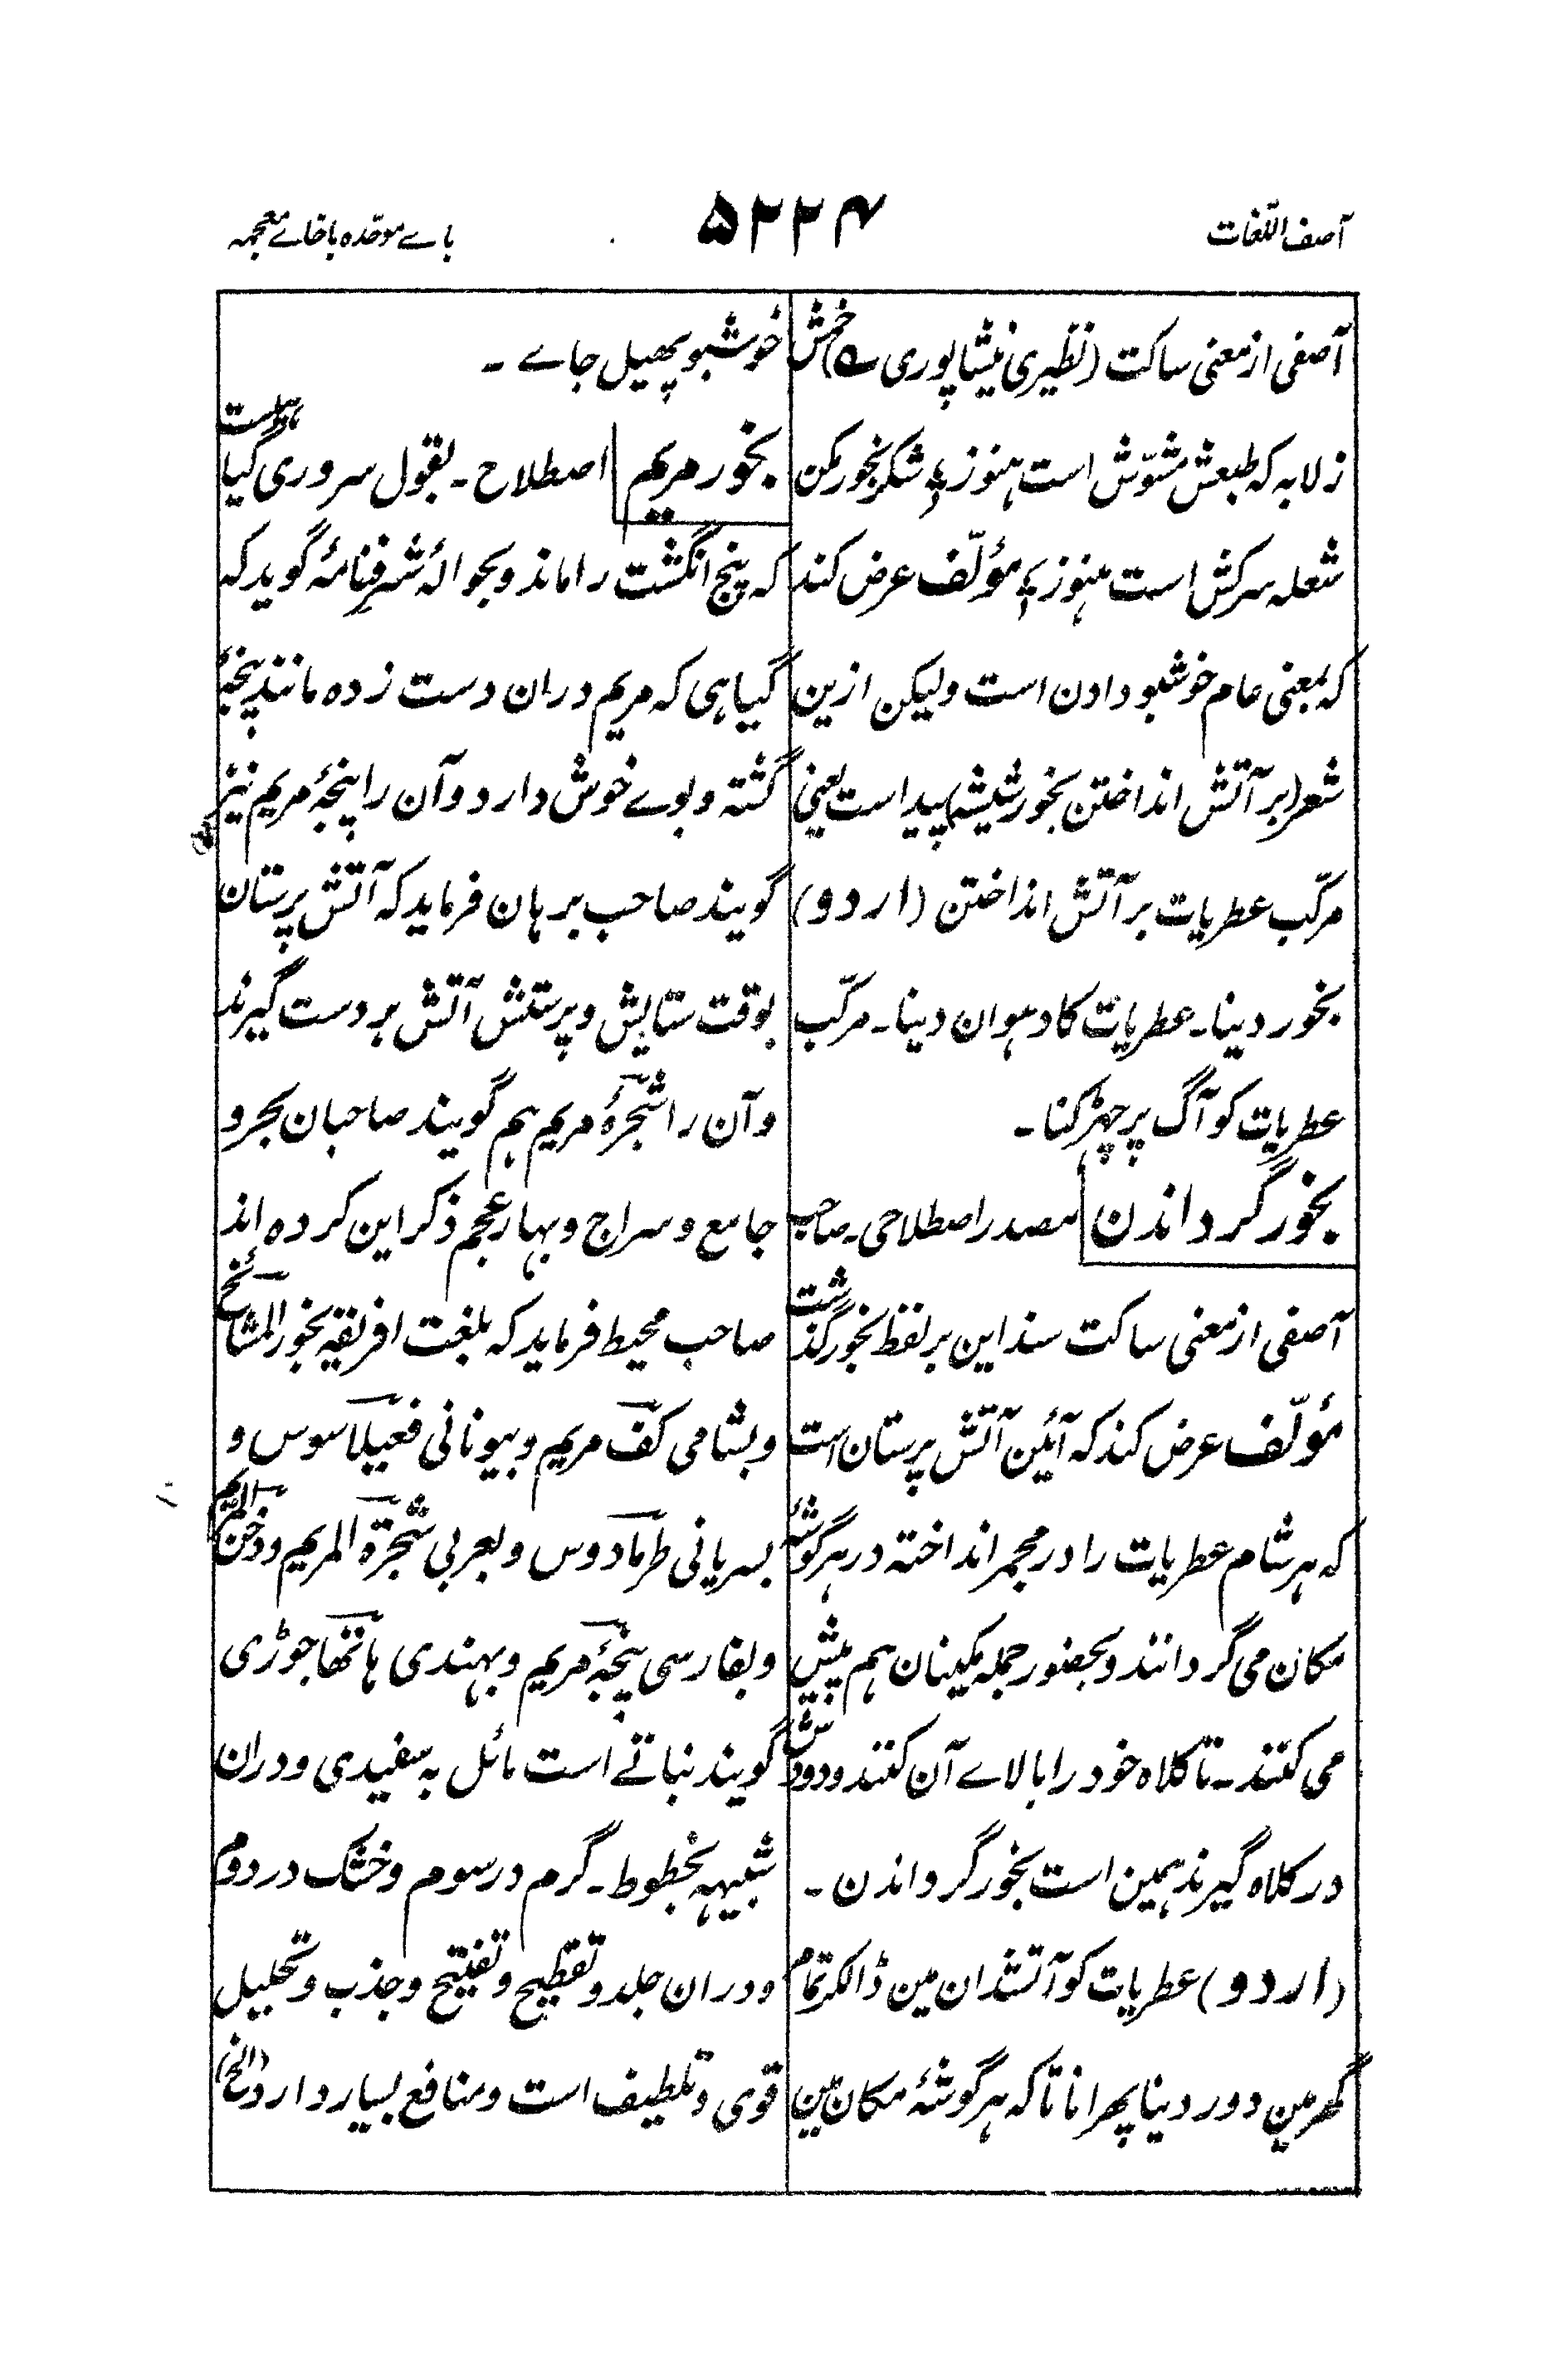 آصف اللّغات
۵۲۲۴
باے موحّدہ باخاے معجمہ
آصفی از معنی ساکت (نظیری نیشاپوری ے) خمش
ز لابہ کہ طبعش مشوّش است ہنوز ؛ شکر بخور مکن
شعلہ سرکش است ہنوز ؛ مؤلّف عرض کند
کہ بمعنی عام خوشبو دادن است ولیکن ازین
شعر (بر آتش انداختن بخور شیشہ) پیداست یعنی
مرکّب عطریات بر آتش انداختن (اردو)
بخور دینا۔ عطریات کا دہوان دینا۔ مرکّب
عطریات کو آگ پر چھڑکنا۔
بخور گرداندن مصدر اصطلاحی۔ صاحب
آصفی از معنی ساکت سند این بر لفظ بخور گذشت
مؤلّف عرض کند کہ آئین آتش پرستان است
کہ ہر شام عطریات را در مجمر انداختہ در ہر گوشۂ
مکان می گردانند و بحضور جملہ مکینان ہم پیش
می کنند۔ تا کلاہ خود را بالاے آن کنند و دودش
در کلاہ گیرند ہمین است بخور گرداندن۔
(اردو) عطریات کو آتشدان مین ڈالکر تمام
گھر مین دور دینا پھرانا تاکہ ہر گوشۂ مکان مین
خوشبو پھیل جاے۔
بخور مریم اصطلاح۔ بقول سروری گیاہیست
کہ پنج انگشت را ماند و بحوالۂ شرفنامہ گوید کہ
گیاہی کہ مریم دران دست زدہ مانند پنجۂ
گشتہ و بوے خوش دارد و آن را پنجۂ مریم نیز
گویند صاحب برہان فرماید کہ آتش پرستان
بوقت ستایش و پرستش آتش بر دست گیرند
و آن را شجرۂ مریم ہم گویند صاحبان بحر و
جامع و سراج و بہار عجم ذکر این کردہ اند
صاحب محیط فرماید کہ بلغت افریقہ بخور المشائخ
و بشامی کف مریم و بیونانی فعیلاسوس و
بسریانی طرمادوس و بعربی شجرۃ المریم و
و بفارسی پنجۂ مریم و بہندی ہاتھا جوڑی
گویند نباتے است مائل بہ سفیدی و دران
شبیہہ بخطوط۔ گرم در سوم و خشک در دوم
و دران جلد و تقطیح و تفتیح و جذب و تحلیل
قوی و تلطیف است و منافع بسیار دارد (الخ)